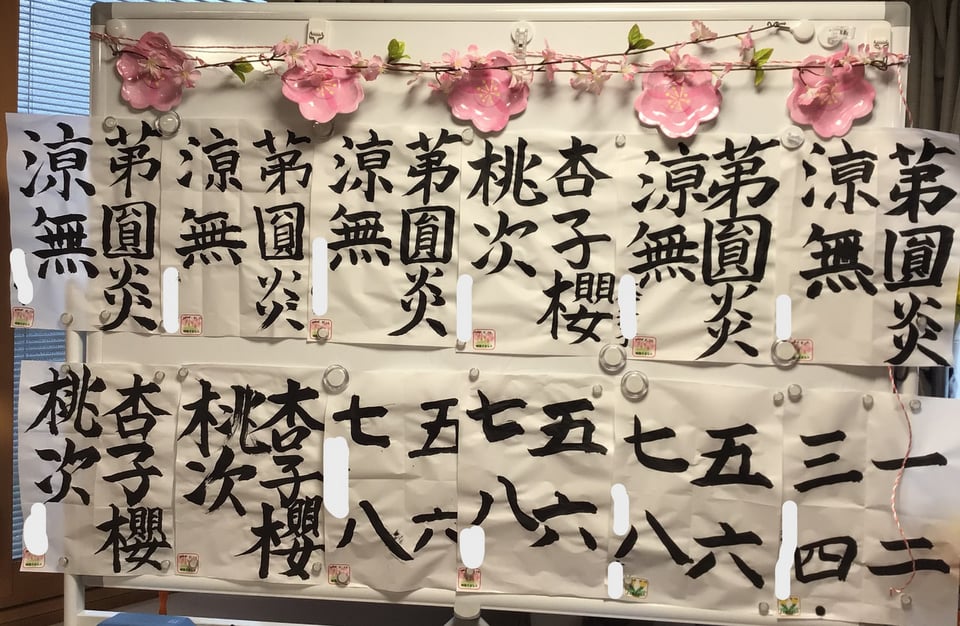 苐圓炎
涼無
苐圓炎
涼無
杏子櫻
桃次
苐圓炎
涼無
苐圓炎
涼無
苐圓炎
涼無
一二
三四
五六
七八
五六
七八
五六
七八
杏子櫻
桃次
杏子櫻
桃次